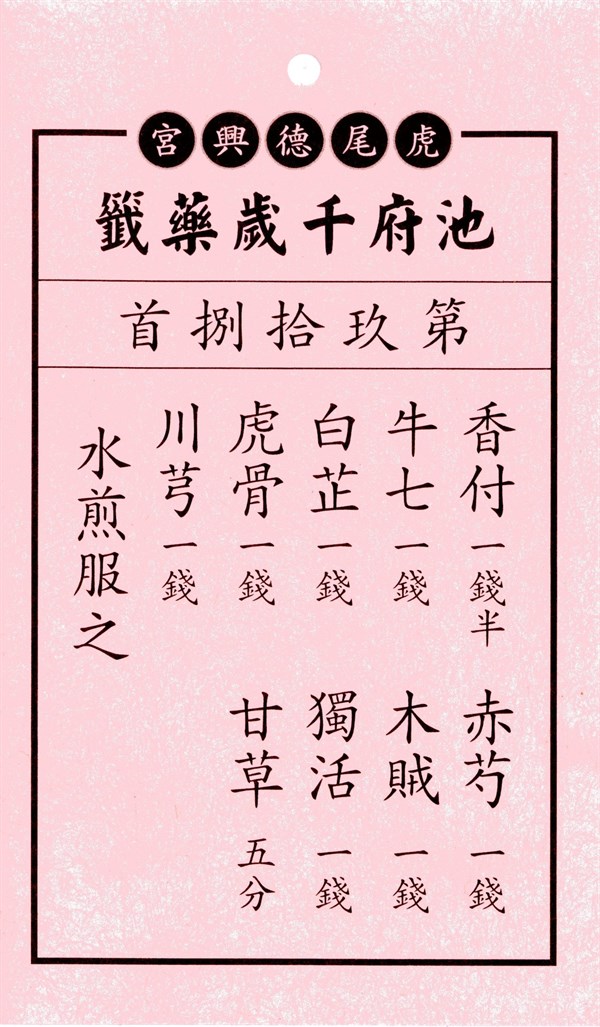 虎尾德興宮
池府千歲藥籤
第玖拾捌首
香付一錢半 赤芍一錢
牛七一錢 木賊一錢
白芷一錢 獨活一錢
虎骨一錢 甘草五分
川芎一錢
水煎服之